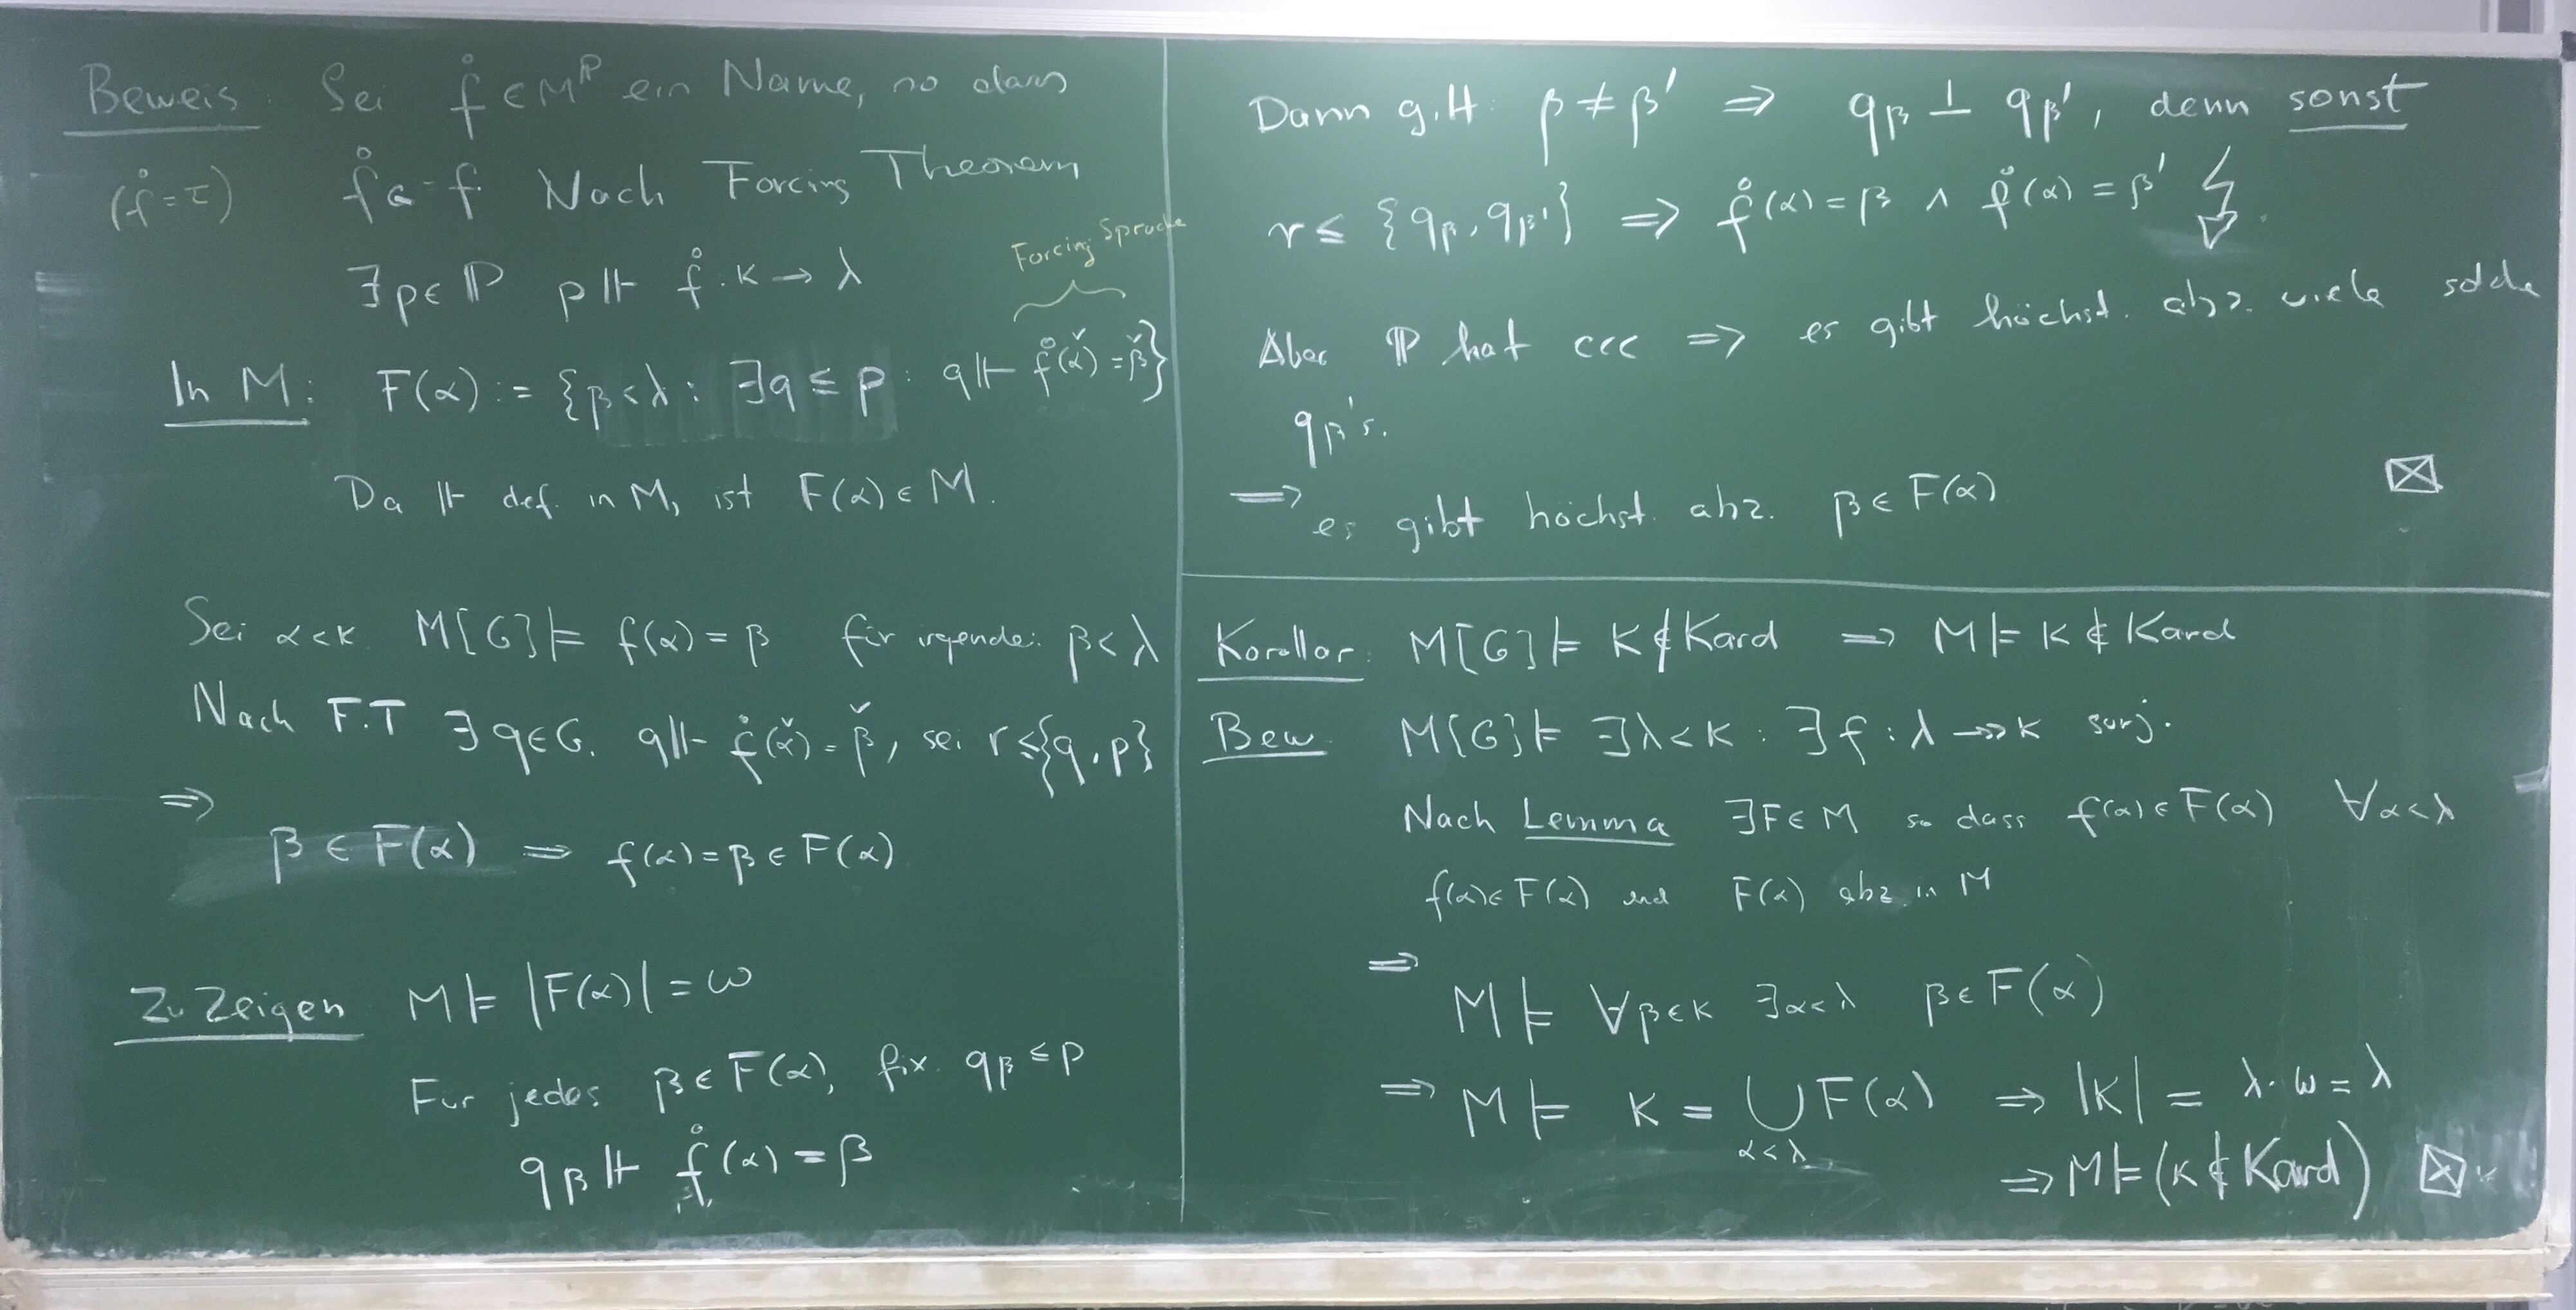 Beweis: Sei f̊ ∈ M^ℙ ein Name, so dass
(f̊ = τ) f̊_G = f. Nach Forcing Theorem
∃p∈ℙ p ⊩ f̊: κ → λ
Forcing Sprache
In M: F(α) := {β<λ : ∃q ≤ p : q ⊩ f̊(α̌) = β̌}
Da ⊩ def. in M, ist F(α) ∈ M.
Sei α<κ. M[G] ⊨ f(α) = β für irgendei. β<λ
Nach F.T ∃q∈G. q ⊩ f̊(α̌) = β̌, sei r ≤ {q, p}
⇒
β ∈ F(α) ⇒ f(α) = β ∈ F(α)
Zu Zeigen M ⊨ |F(α)| = ω
Für jedes β ∈ F(α), fix. q_β ≤ p
q_β ⊩ f̊(α) = β
Dann gilt: β ≠ β' ⇒ q_β ⊥ q_β', denn sonst
r ≤ {q_β, q_β'} ⇒ f̊(α) = β ∧ f̊(α) = β' ↯
Aber ℙ hat ccc ⇒ es gibt höchst. abz. viele solche
q_β's.
⇒ es gibt höchst. abz. β ∈ F(α) ⊠
Korollar: M[G] ⊨ κ ∉ Kard ⇒ M ⊨ κ ∉ Kard
Bew. M[G] ⊨ ∃λ<κ : ∃f : λ ↠ κ surj.
Nach Lemma ∃F∈M so dass f(α) ∈ F(α) ∀α<λ
f(α) ∈ F(α) und F(α) abz. in M
⇒
M ⊨ ∀β∈κ ∃α<λ β ∈ F(α)
⇒ M ⊨ κ = ⋃_{α<λ} F(α) ⇒ |κ| = λ·ω = λ
⇒ M ⊨ (κ ∉ Kard) ⊠